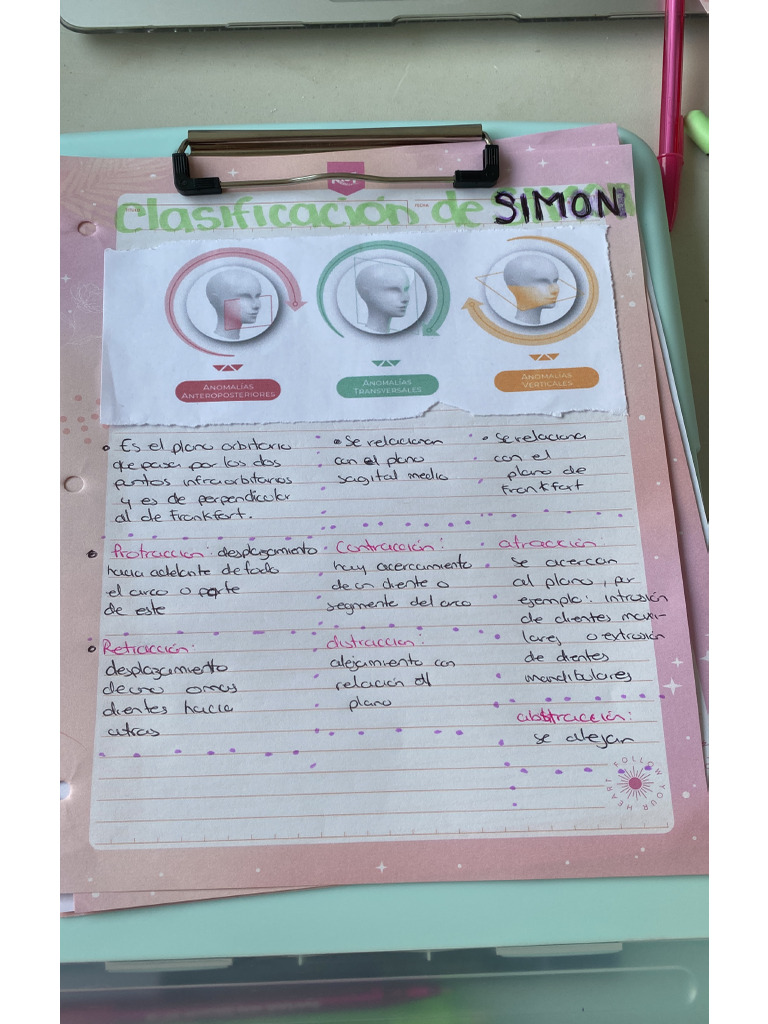 Clasificación de SIMON
FECHA
ANOMALÍAS
ANTEROPOSTERIORES
ANOMALÍAS
TRANSVERSALES
ANOMALÍAS
VERTICALES
• Es el plano orbitario
que pasa por los dos
puntos infraorbitarios
y es de perpendicular
al de Frankfort.
• Se relacionan
con el plano
sagital medio
• Se relaciona
con el
plano de
Frankfort
• Protraccion: desplazamiento
hacia adelante de todo
el arco o parte
de este
Contracción:
hay acercamiento
de un diente o
segmento del arco
atracción:
se acercan
al plano, por
ejemplo: intrusión
de dientes maxi-
lares o extrusión
de dientes
mandibulares
• Retracción:
desplazamiento
de uno o mas
dientes hacia
atras
distraccion:
alejamiento con
relación al
plano
abstracción:
se alejan
FOLLOW YOUR HEART